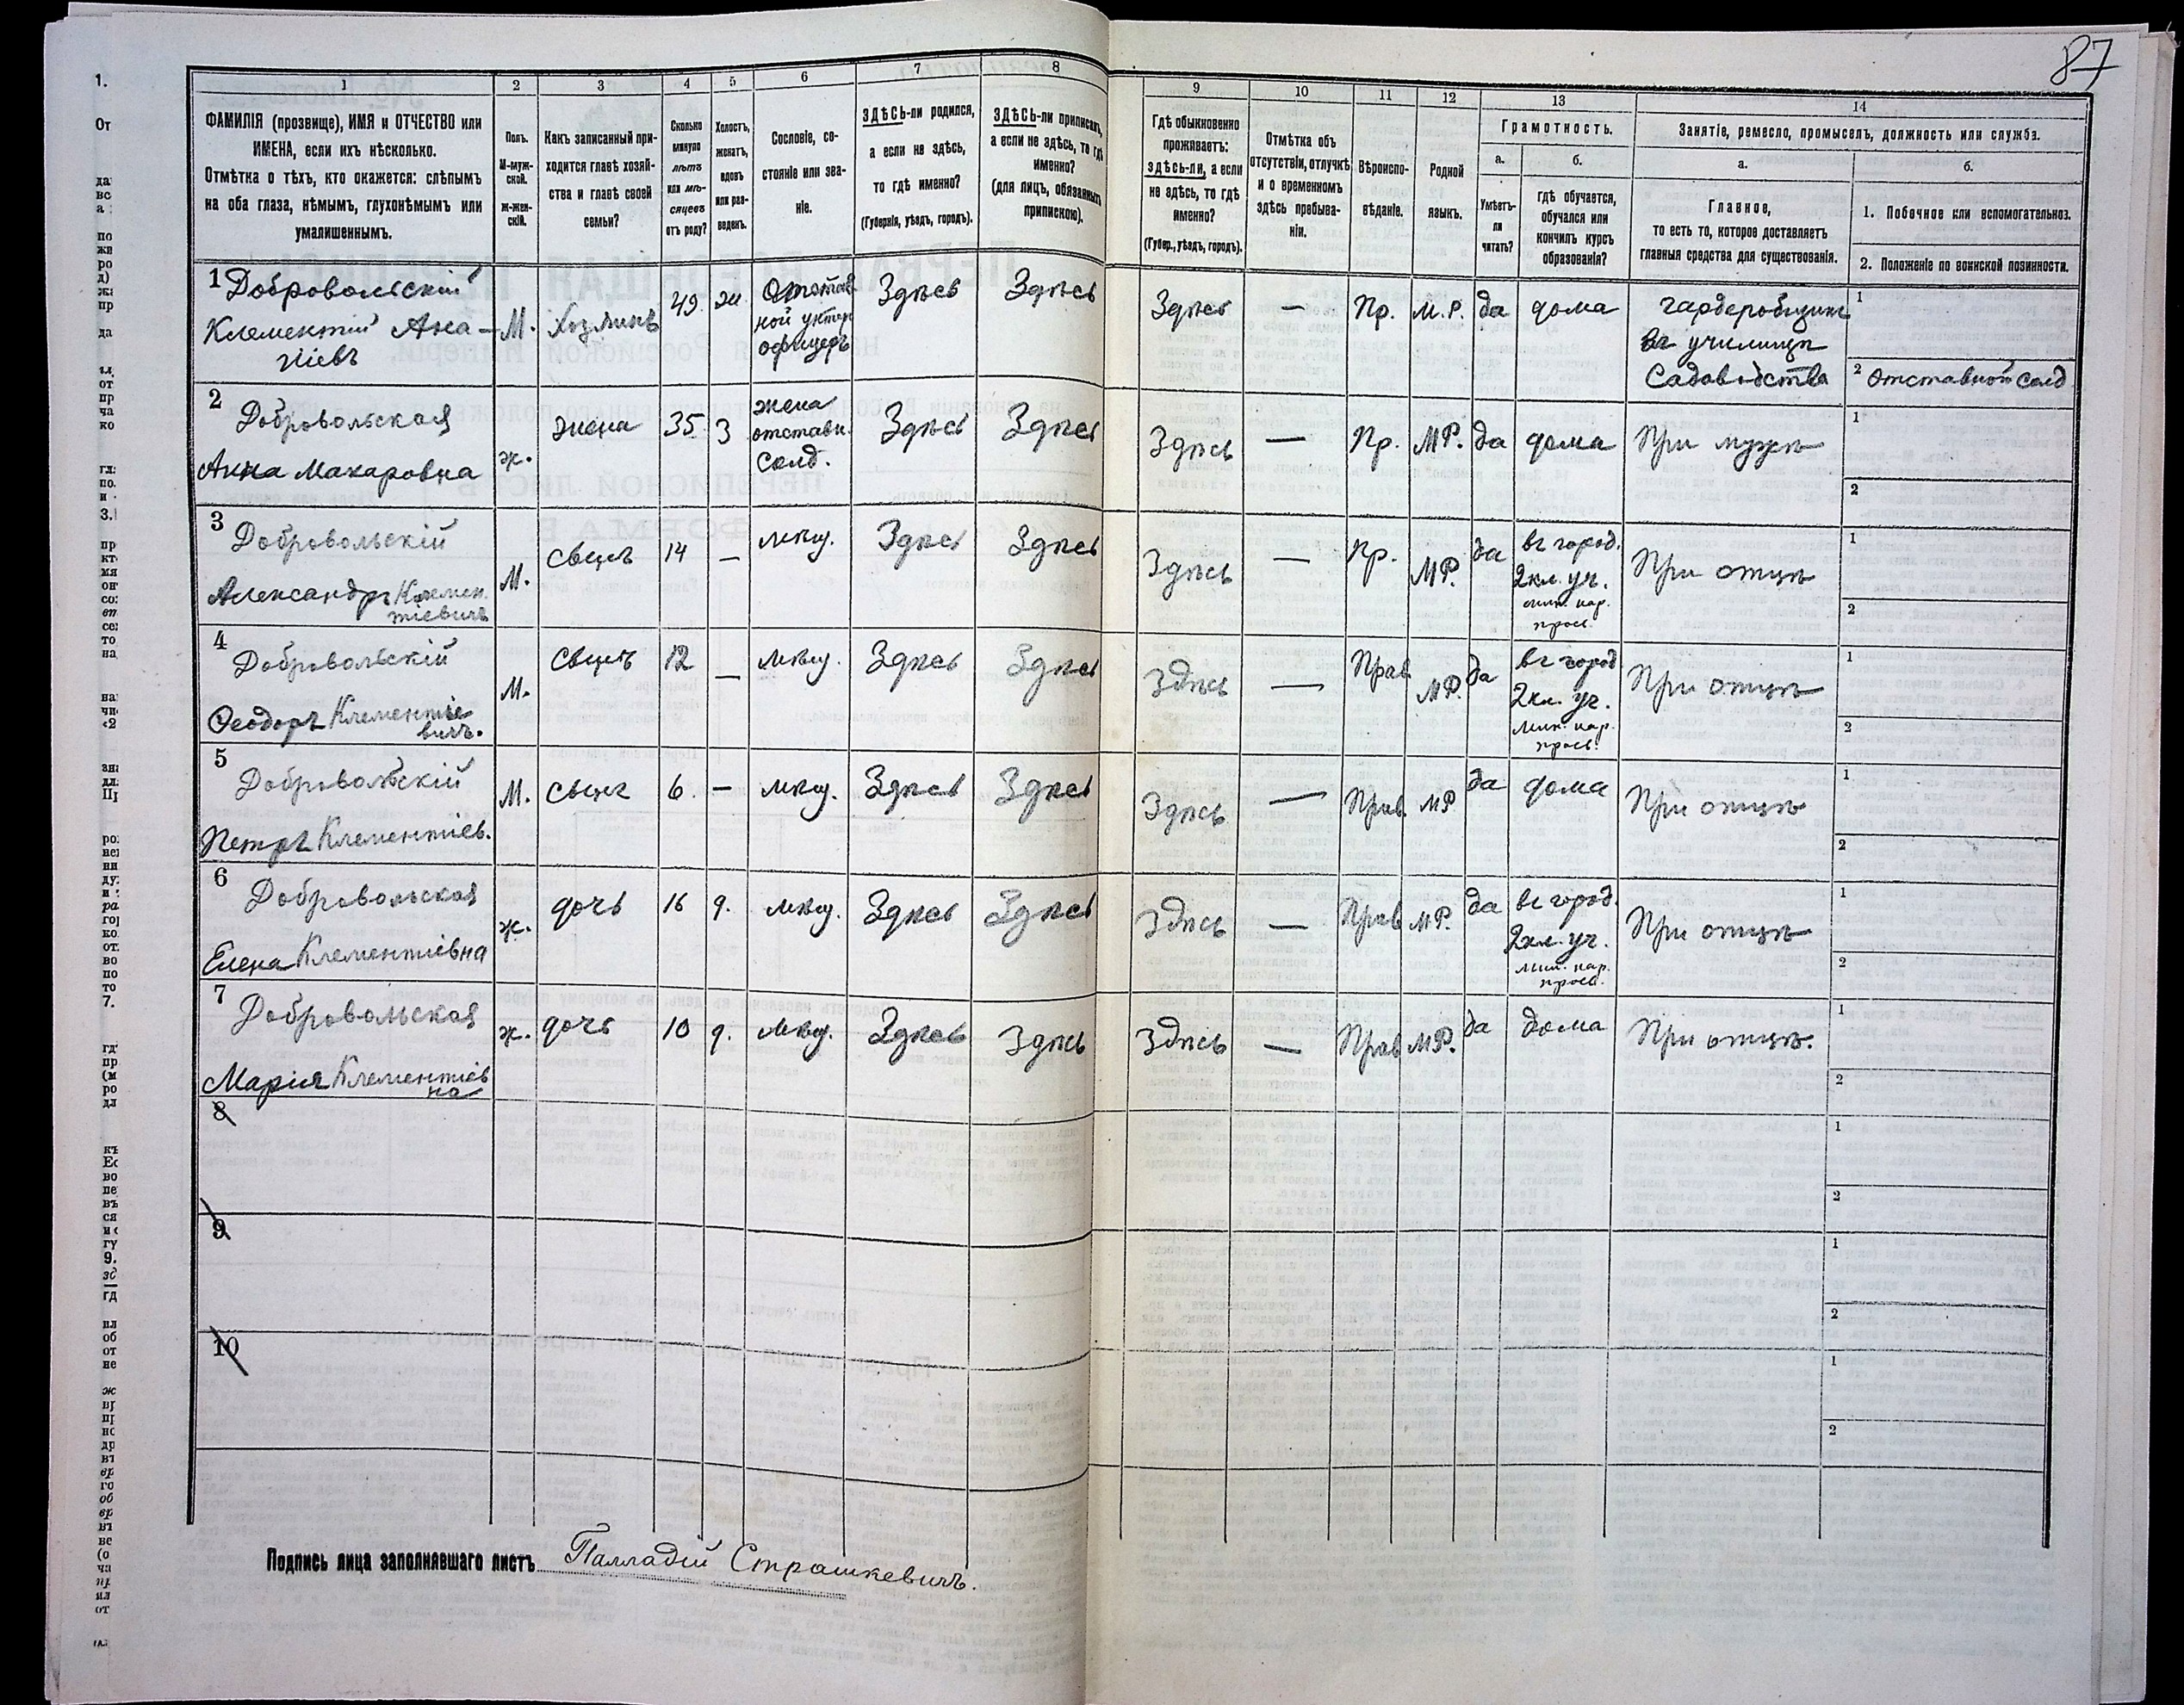 87
1 2 3 4 5 6 7 8 9 10 11 12 13 14
ФАМИЛІЯ (прозвище), ИМЯ и ОТЧЕСТВО или
ИМЕНА, если ихъ нѣсколько.
Отмѣтка о тѣхъ, кто окажется: слѣпымъ
на оба глаза, нѣмымъ, глухонѣмымъ или
умалишеннымъ.
Полъ.
М-муж-
ской.
Ж-жен-
скій.
Какъ записанный при-
ходится главѣ хозяй-
ства и главѣ своей
семьи?
Сколько
минуло
лѣтъ
или мѣ-
сяцевъ
отъ роду?
Холостъ,
женатъ,
вдовъ
или раз-
веденъ.
Сословіе, со-
стояніе или зва-
ніе.
ЗДѢСЬ-ли родился,
а если не здѣсь,
то гдѣ именно?
(Губернія, уѣздъ, городъ).
ЗДѢСЬ-ли приписанъ,
а если не здѣсь, то гдѣ
именно?
(для лицъ, обязанныхъ
припискою).
Гдѣ обыкновенно
проживаетъ:
ЗДѢСЬ-ли, а если
не здѣсь, то гдѣ
именно?
(Губер., уѣздъ, городъ).
Отмѣтка объ
отсутствіи, отлучкѣ
и о временномъ
здѣсь пребыва-
ніи.
Вѣроиспо-
вѣданіе.
Родной
языкъ.
Грамотность.
а.
Умѣетъ-
ли
читать?
б.
Гдѣ обучается,
обучался или
кончилъ курсъ
образованія?
Занятіе, ремесло, промыселъ, должность или служба.
а.
Главное,
то есть то, которое доставляетъ
главныя средства для существованія.
б.
1. Побочное или вспомогательное.
2. Положеніе по воинской повинности.
1 Добровольскій
Клементій Ана-
ніевъ
М.
Хозяинъ
49
ж
Отстав
ной унтер
офицеръ
Здѣсь
Здѣсь
Здѣсь
—
Пр.
М.Р.
да
дома
гардеробщикъ
въ училищѣ
Садоводства
1
2 Отставной солд
2
Добровольская
Анна Макаровна
ж.
жена
35
З
жена
отставн.
солд.
Здѣсь
Здѣсь
Здѣсь
—
Пр.
МР.
да
дома
При мужѣ
1
2
3
Добровольскій
Александръ Клемен
тіевичъ
М.
сынъ
14
—
мѣщ.
Здѣсь
Здѣсь
Здѣсь
—
Пр.
МР.
да
въ город.
2кл. уч.
мин. нар.
прос.
При отцѣ
1
2
4
Добровольскій
Ѳеодоръ Клементіе
вичъ.
М.
сынъ
12
—
мѣщ.
Здѣсь
Здѣсь
Здѣсь
—
Прав
МР.
да
въ город
2кл. уч.
мин. нар.
просв.
При отцѣ
1
2
5
Добровольскій
Петръ Клементіев.
М.
сынъ
6.
—
мѣщ.
Здѣсь
Здѣсь
Здѣсь
—
Прав.
МР
да
дома
При отцѣ
1
2
6
Добровольская
Елена Клементіевна
ж.
дочь
16
д.
мѣщ.
Здѣсь
Здѣсь
Здѣсь
—
Прав
МР.
да
въ город.
2кл. уч.
мин. нар.
просв.
При отцѣ
1
2
7
Добровольская
Марія Клементіев
на
ж.
дочь
10
д.
мѣщ.
Здѣсь
Здѣсь
Здѣсь
—
Прав
МР.
да
дома
При отцѣ.
1
2
8
1
2
9
1
2
10
1
2
Подпись лица заполнявшаго листъ Палладій Страшкевичъ.